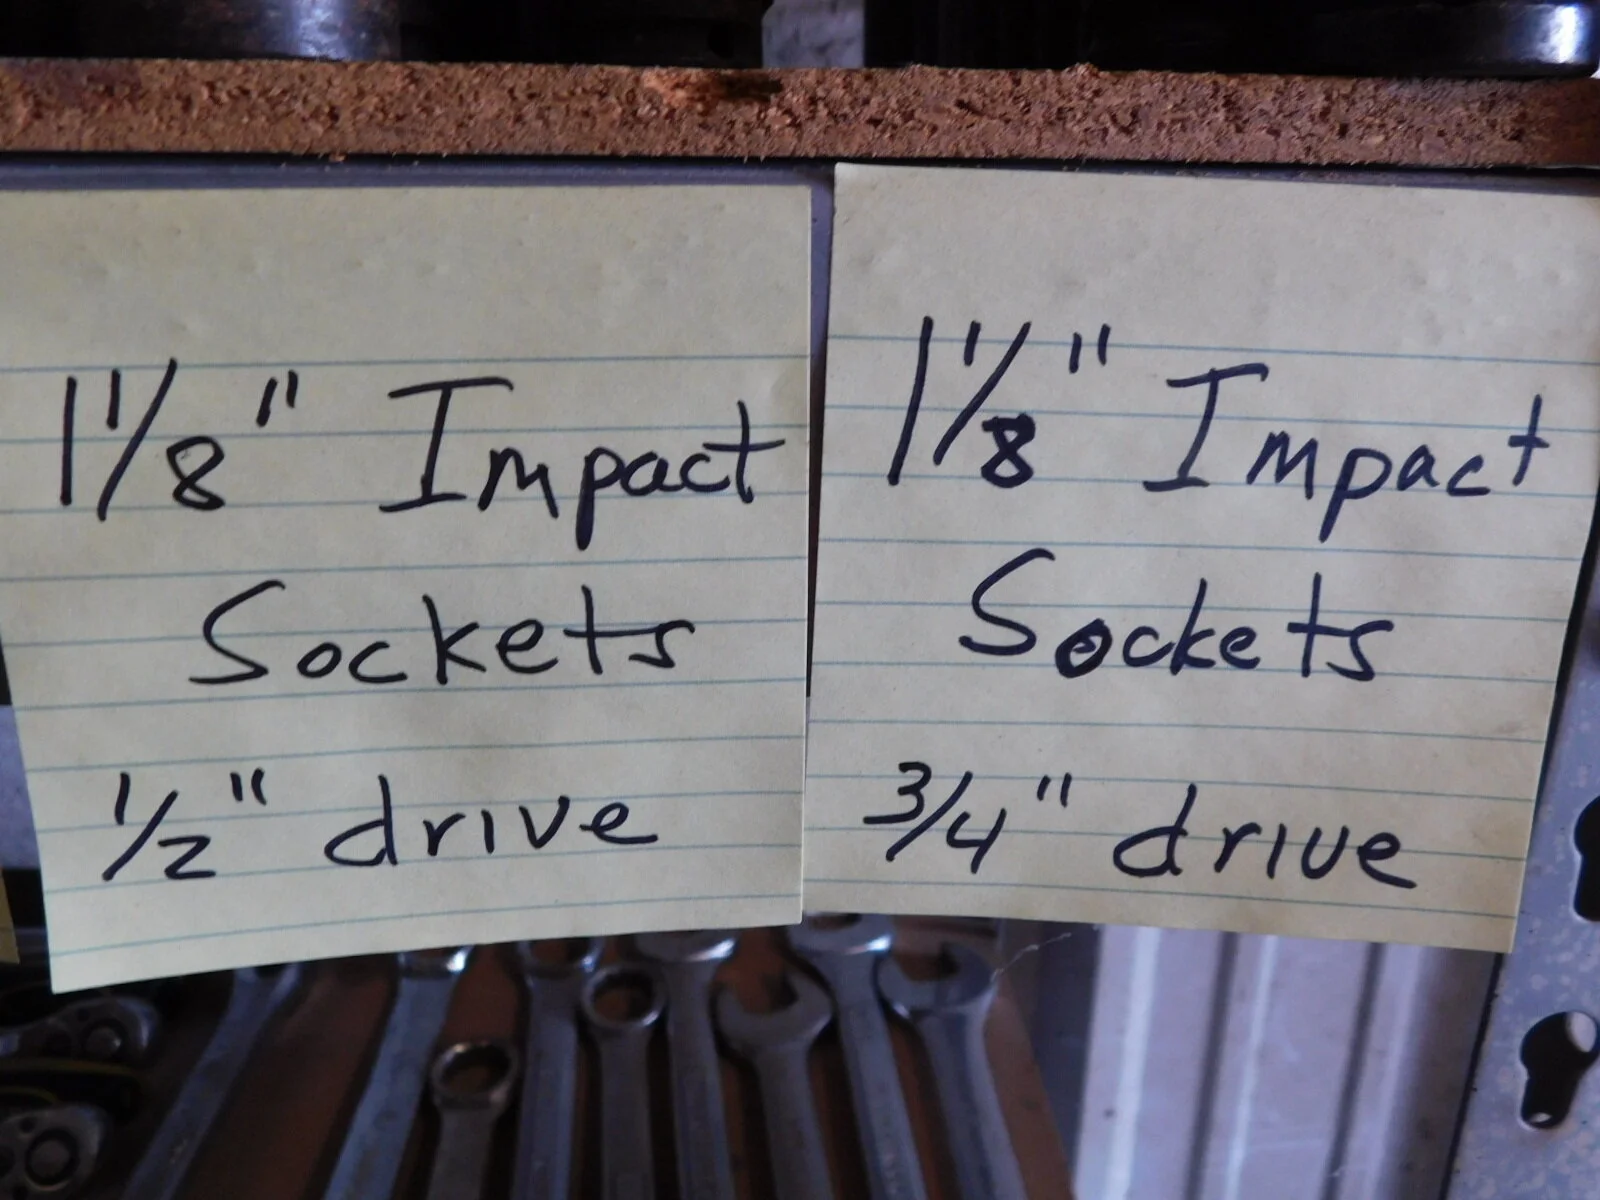 1 1/8" Impact
Sockets
1/2" drive
1 1/8" Impact
Sockets
3/4" drive